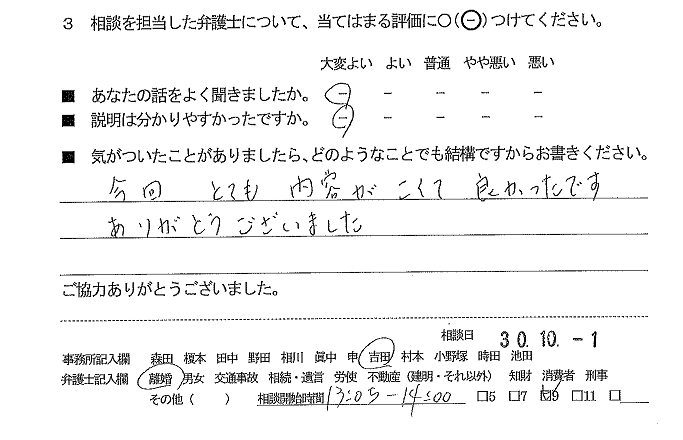 3 相談を担当した弁護士について、当てはまる評価に○(⊖)つけてください。
大変よい よい 普通 やや悪い 悪い
■ あなたの話をよく聞きましたか。 － － － － －
■ 説明は分かりやすかったですか。 － － － － －
■ 気がついたことがありましたら、どのようなことでも結構ですからお書きください。
今回 とても 内容が こくて 良かったです
ありがとうございました
ご協力ありがとうございました。
相談日 30.10.-1
事務所記入欄 森田 榎本 田中 野田 相川 眞中 申 吉田 村本 小野塚 時田 池田
弁護士記入欄 離婚・男女 交通事故 相続・遺言 労使 不動産（建明・それ以外） 知財 消費者 刑事
その他（ ） 相談開始時間 13:05-14:00 □5 □7 □9 □11 □